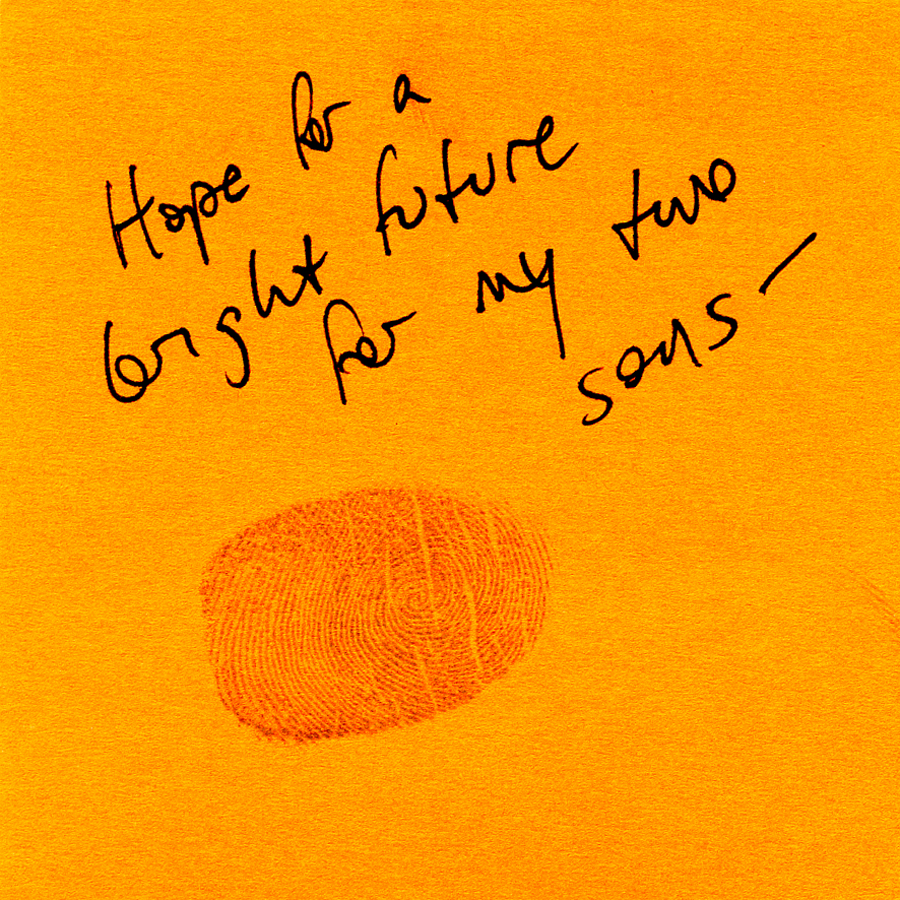 Hope for a
bright future
for my two
sons –